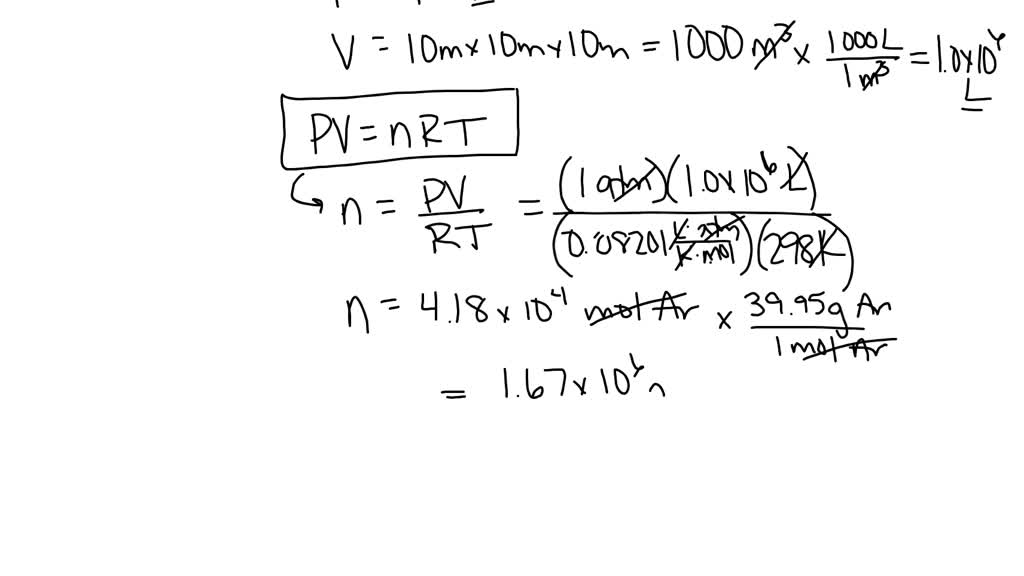 V = 10m x 10m x 10m = 1000 m³ x 1000L / 1m³ = 1.0x10⁶ L
PV = nRT
n = PV / RT = (1 atm)(1.0x10⁶ L) / (0.08201 L·atm / K·mol)(298K)
n = 4.18 x 10⁴ mol Ar x 39.95g Ar / 1 mol Ar
= 1.67 x 10⁶